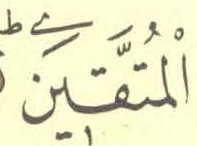 الْمُتَّقِينَ